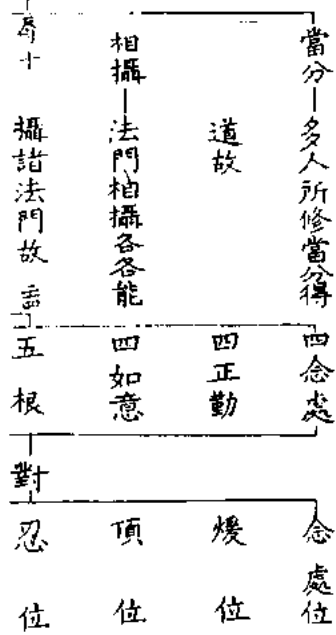 當分—多人所修當分得
道故
相攝—法門相攝各各能
攝諸法門故
四念處
四正勤
四如意
五根
對
念處位
煖位
頂位
忍位